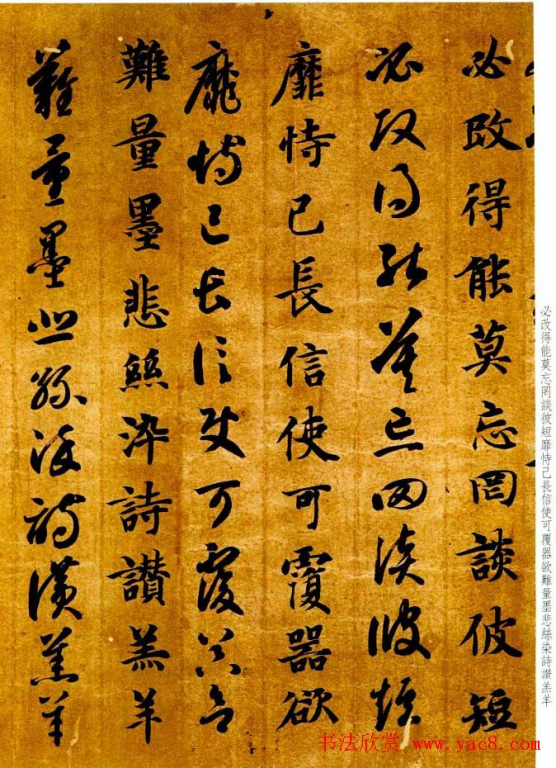 必改得能莫忘罔談彼短
必改得能莫忘罔談彼短
靡恃己長信使可覆器欲
靡恃己長信使可覆器欲
難量墨悲絲染詩讚羔羊
難量墨悲絲染詩讚羔羊
必改得能莫忘罔談彼短靡恃己長信使可覆器欲難量墨悲絲染詩讚羔羊
书法欣赏 www.yac8.com